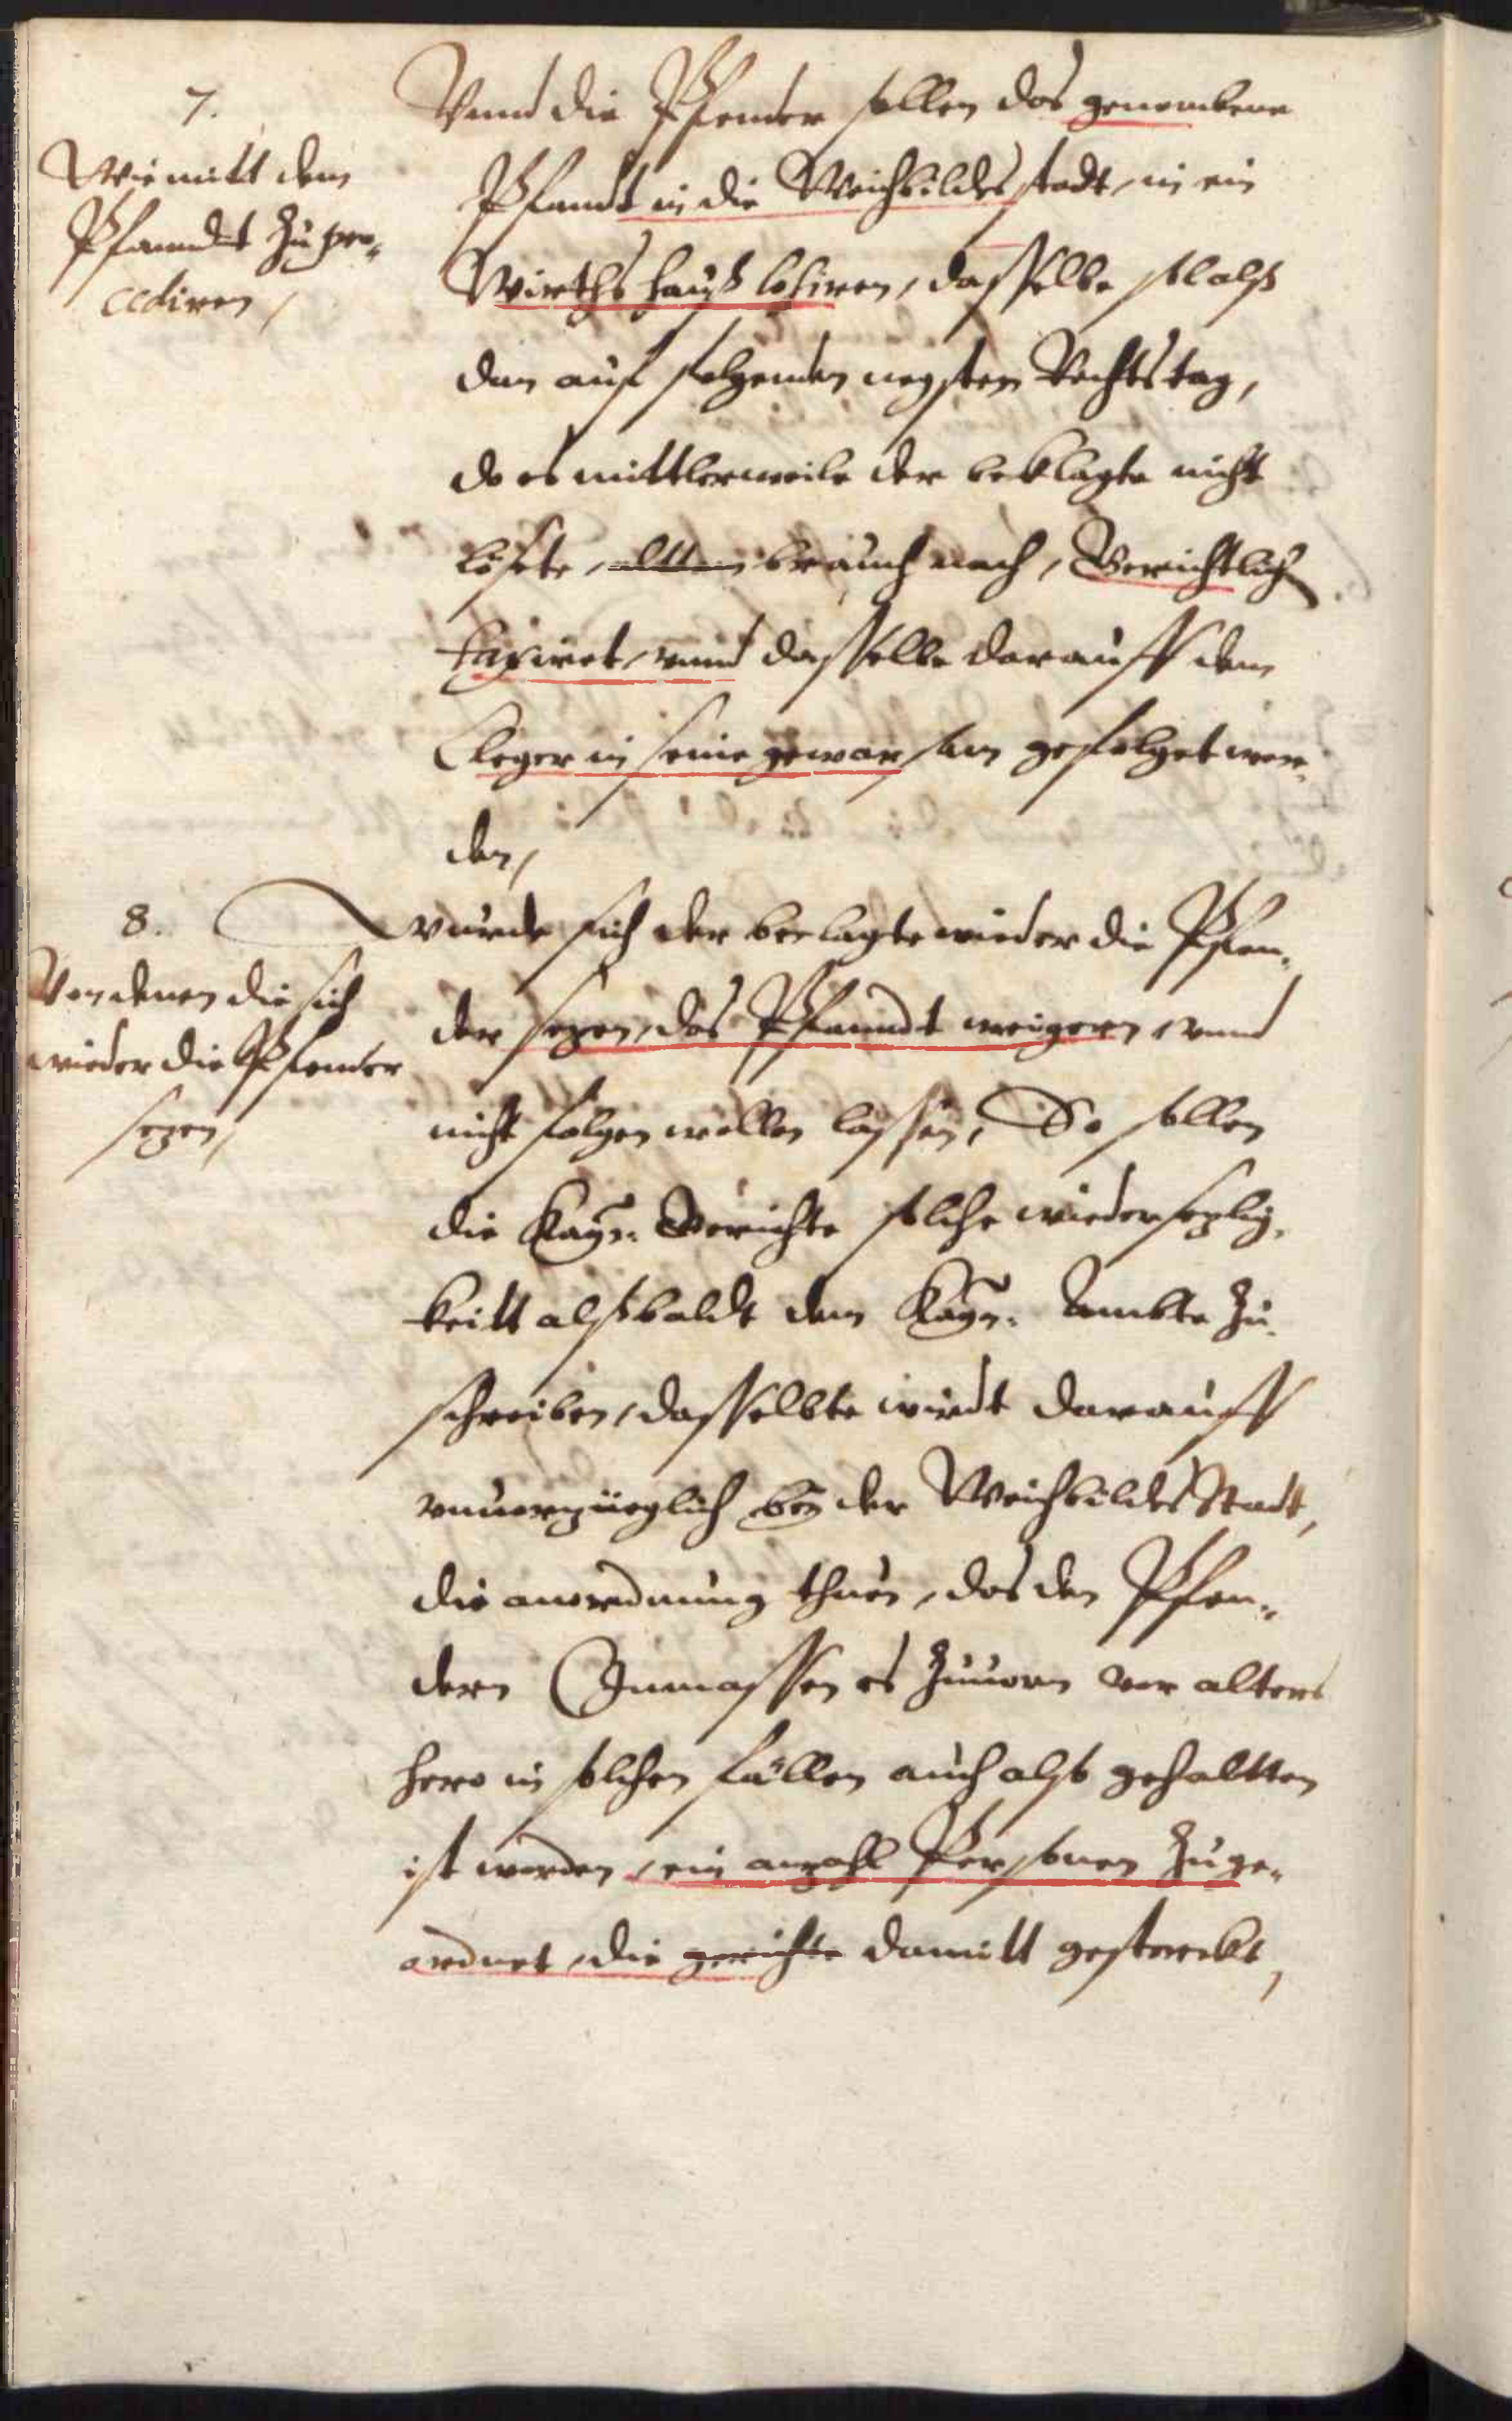 7.
Wie mitt dem
Pfanndt zu pro-
cediren /
Vnnd die Pfender sollen das genombene
Pfandt in die Weichbildes stadt, in ein
Wirthshauß losiren, dasselbe soll alß
dan auf folgenden negsten Rechtstag,
do es mittlerweile der beklagte nicht
lösete, altem brauch nach, Gerichtlich
taxiret, vnnd dasselbe darauff dem
Cleger in seine gewarsam gefolget wer-
den,
8.
Von denen die sich
wieder die Pfender
sezen,
wurde sich der beclagte wieder die Pfen-
der sezen, das Pfanndt weigern, vnnd
nicht folgen wollen lassen, So sollen
die Kays: Gerichte solche wiedersezlig-
keitt alßbaldt dem Kays: Ambte zu-
schreiben, dasselbte wirdt darauff
vnuorzüeglich bey der Weichbildes Stadt,
die anordnung thuen, das den Pfen-
dern Inmassen es zuuorn vor alters
hero in solchen fällen auch also gehaltten
ist worden, ein anzahl Personen zuge-
ordnet, die gerichte damitt gesterckt,